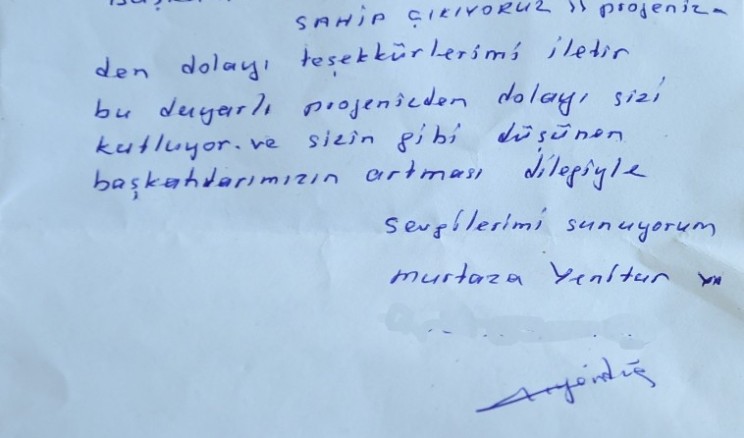 SAHİP ÇIKIYORUZ )) projeniz-
den dolayı teşekkürlerimi iletir
bu duyarlı projenizden dolayı sizi
kutluyor. ve sizin gibi düşünen
başkanlarımızın artması dileğiyle
sevgilerimi sunuyorum
murtaza